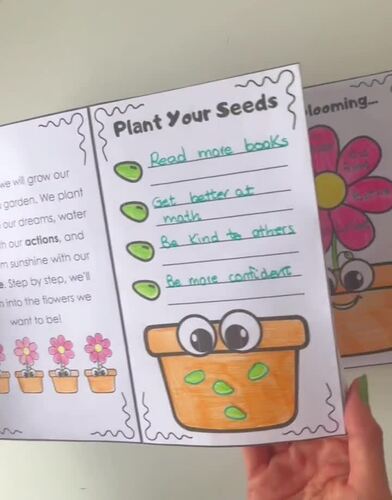 we will grow our
garden. We plant
our dreams, water
our actions, and
sunshine with our
Step by step, we'll
into the flowers we
want to be!
Plant Your Seeds
Read more books
Get better at
math
Be kind to others
Be more confident